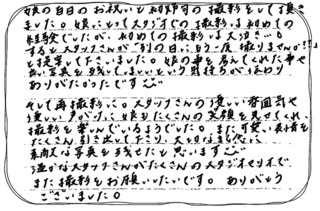 娘の百日のお祝いと初節句の撮影をして頂き
ました。娘にとってスタジオでの撮影は初めての
経験でしたが、初めての撮影は大泣き。
するとスタッフさんが"別の日にもう一度撮りませんか!!"
と提案して下さいました。娘の事を考えてくれた事や
良い写真を残してほしいという気持ちが伝わり
ありがたかったです
そして再撮影に。スタッフさんの優しい雰囲気や
優しい声かけ、娘もたくさんの笑顔を見せてくれ、
撮影を楽しんでいるようでした。また可愛い表情を
たくさん引き出して下さり、
素敵な写真を残せたと思います
温かなスタッフさんがたくさんのスタジオです
また撮影をお願いしたいです。ありがとう
ございました。